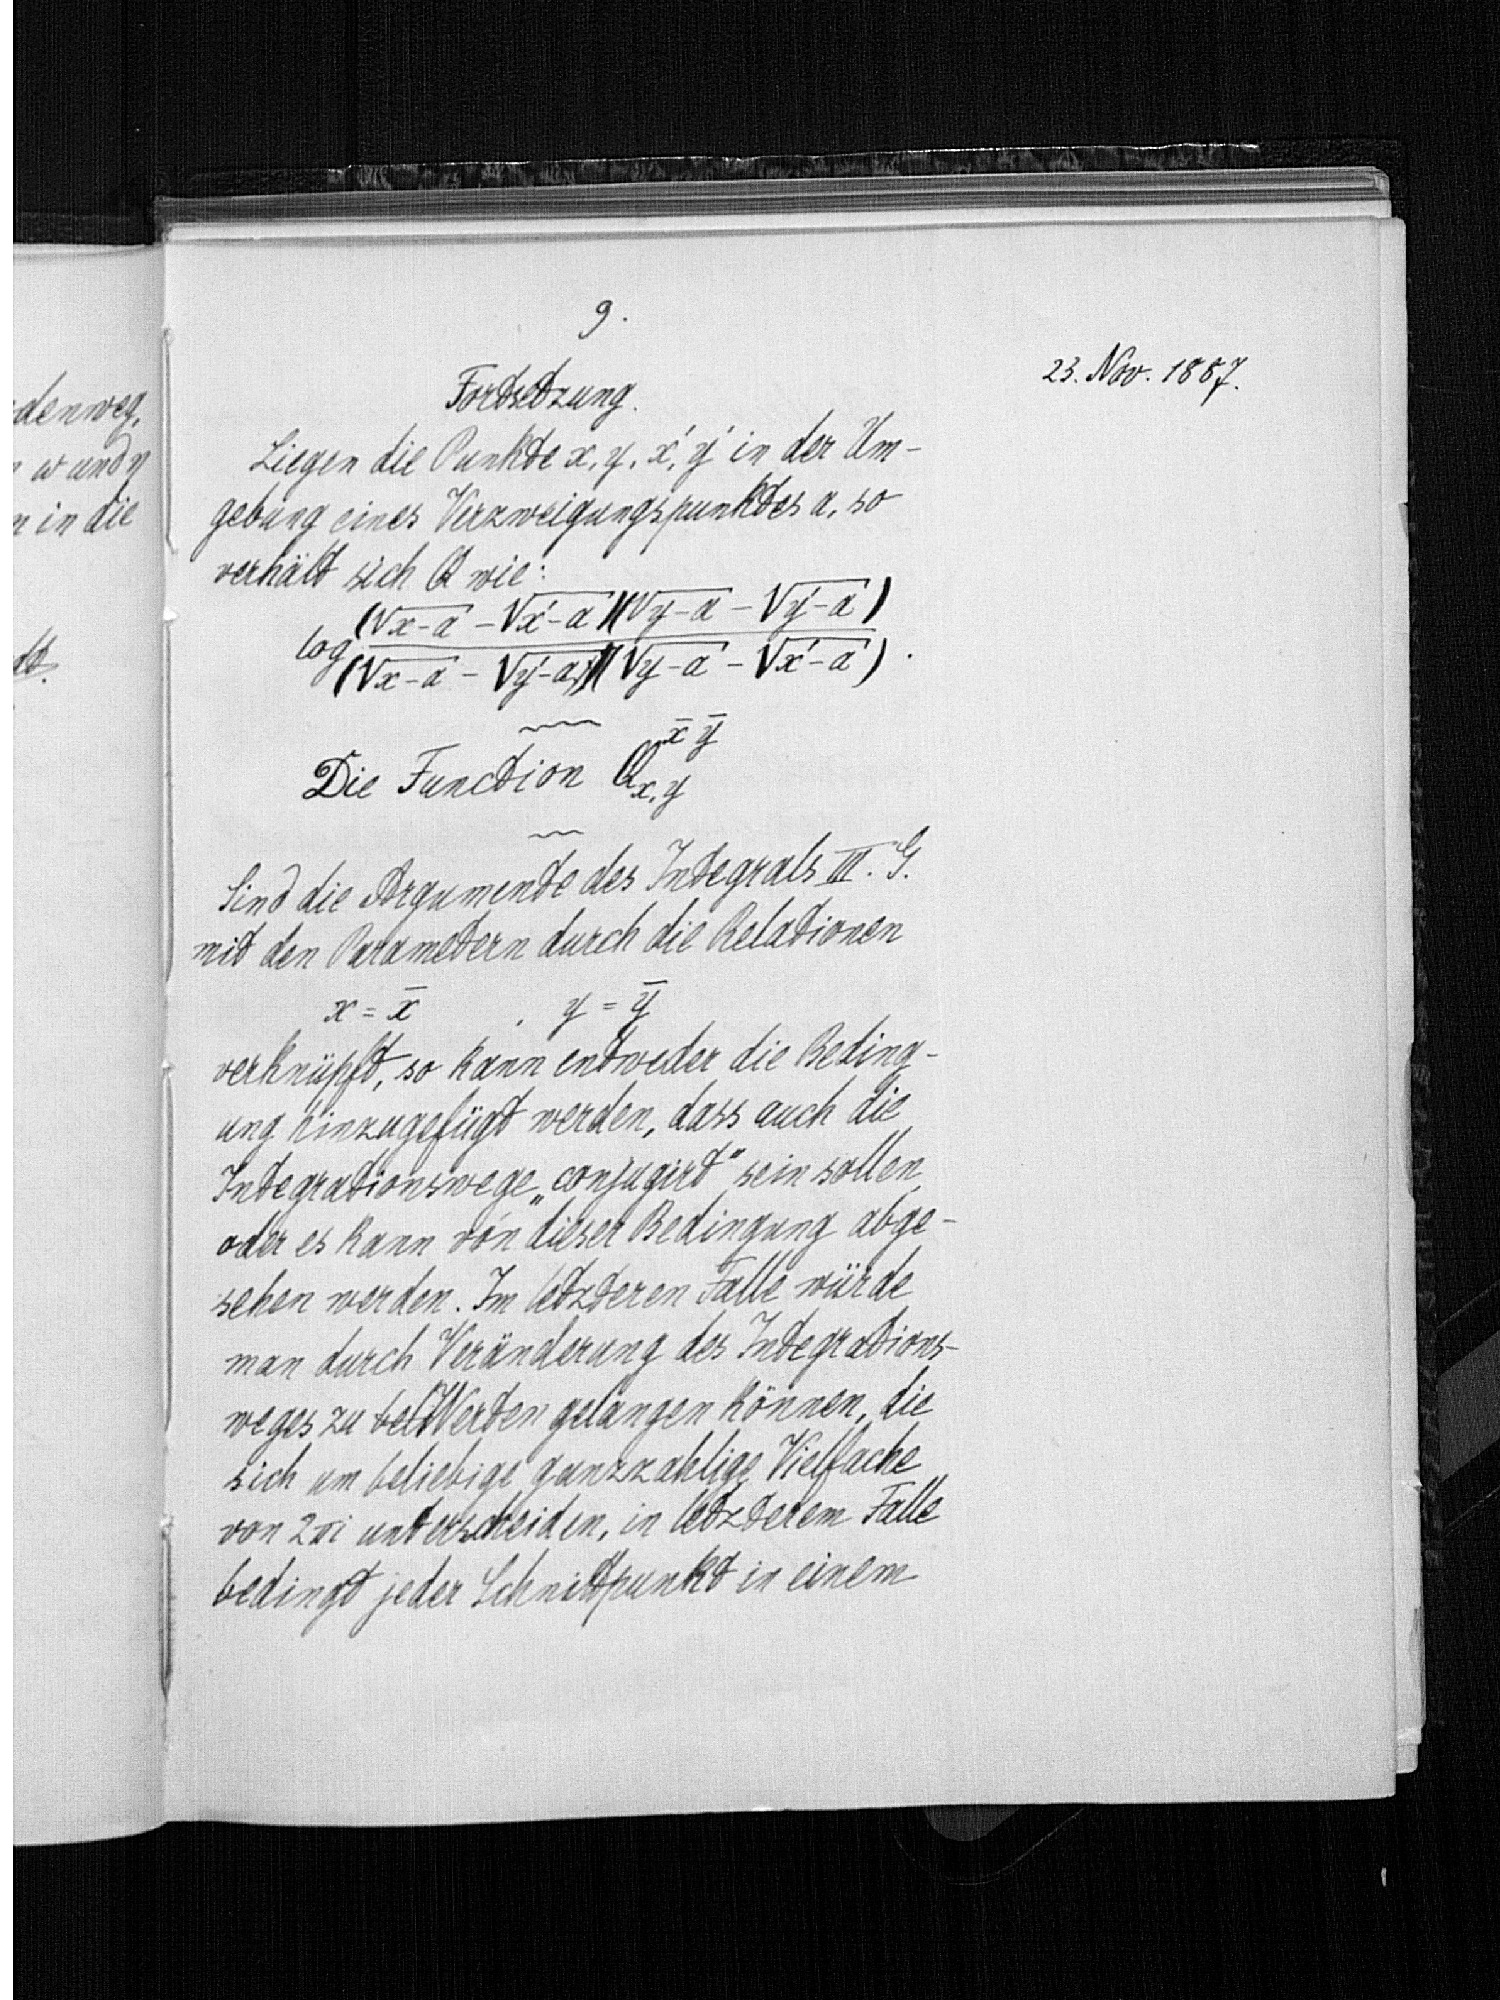 denweg,
w und η
n in die
9.
23. Nov. 1887.
Fortsetzung.
Liegen die Punkte x, y, x', y' in der Um-
gebung eines Verzweigungspunktes a, so
verhält sich Q wie:
log (√x-a - √x'-a)(√y-a - √y'-a)
(√x-a - √y'-a)(√y-a - √x'-a) .
Die Function Q x̄ ȳ x, y
Sind die Argumente des Integrals III. G.
mit den Parametern durch die Relationen
x = x̄ , y = ȳ
verknüpft, so kann entweder die Beding-
ung hinzugefügt werden, dass auch die
Integrationswege „conjugirt" sein sollen
oder es kann von dieser Bedingung abge-
sehen werden. Im letzteren Falle würde
man durch Veränderung des Integrations-
weges zu bel Werten gelangen können, die
sich um beliebige ganzzahlige Vielfache
von 2πi unterscheiden, in letzterem Falle
bedingt jeder Schnittpunkt in einem